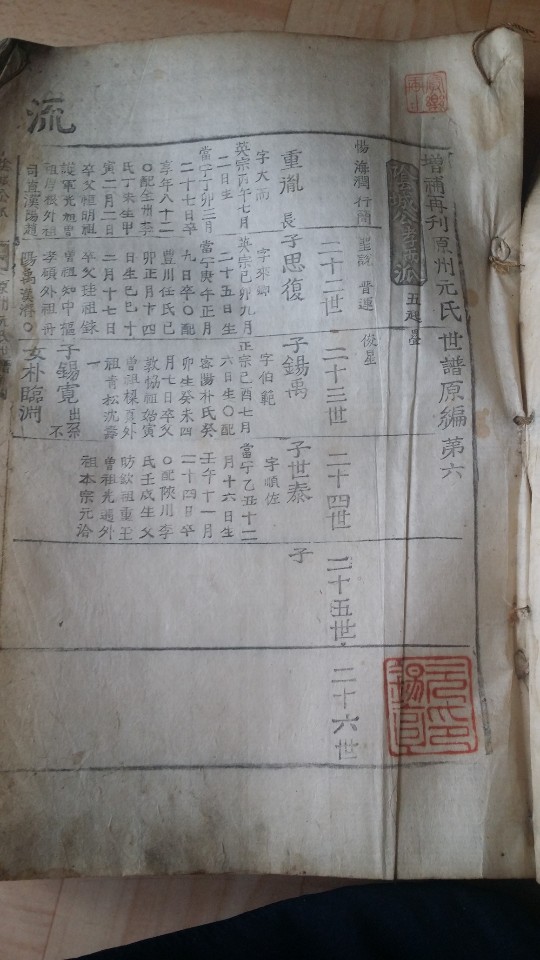 增補再刊原州元氏世譜原編第六
陰城公 派 五 疊
惕 海潤 行簡 聖說 晋運 俊星
二十二世
二十三世
二十四世
二十五世
二十六世
重胤 長
字大而
英宗丙午七月
二日生
當宁丁卯三月
二十七日卒
享年八十二
〇配全州李
氏丁未生甲
寅二月二日
卒父恒明祖
護軍光祖曾
子思復
字來卿
英宗己卯九月
二十五日生
當宁庚午正月
九日卒〇配
豐川任氏己
卯正月十四
日生己巳十
二月十七日
曾祖知中樞
子錫禹
字伯範
正宗己酉七月
六日生〇配
密陽朴氏癸
卯生癸未四
月七日卒父
敦協祖始寅
祖青松沈
子錫寬 出系
女朴臨淵
子世泰
字順佐
當宁乙丑十二
月十六日生
壬午十一月
二十四日卒
〇配陜川李
氏壬戌生父
昉欽祖重玉
曾祖光通外
祖本宗元洽
子
流